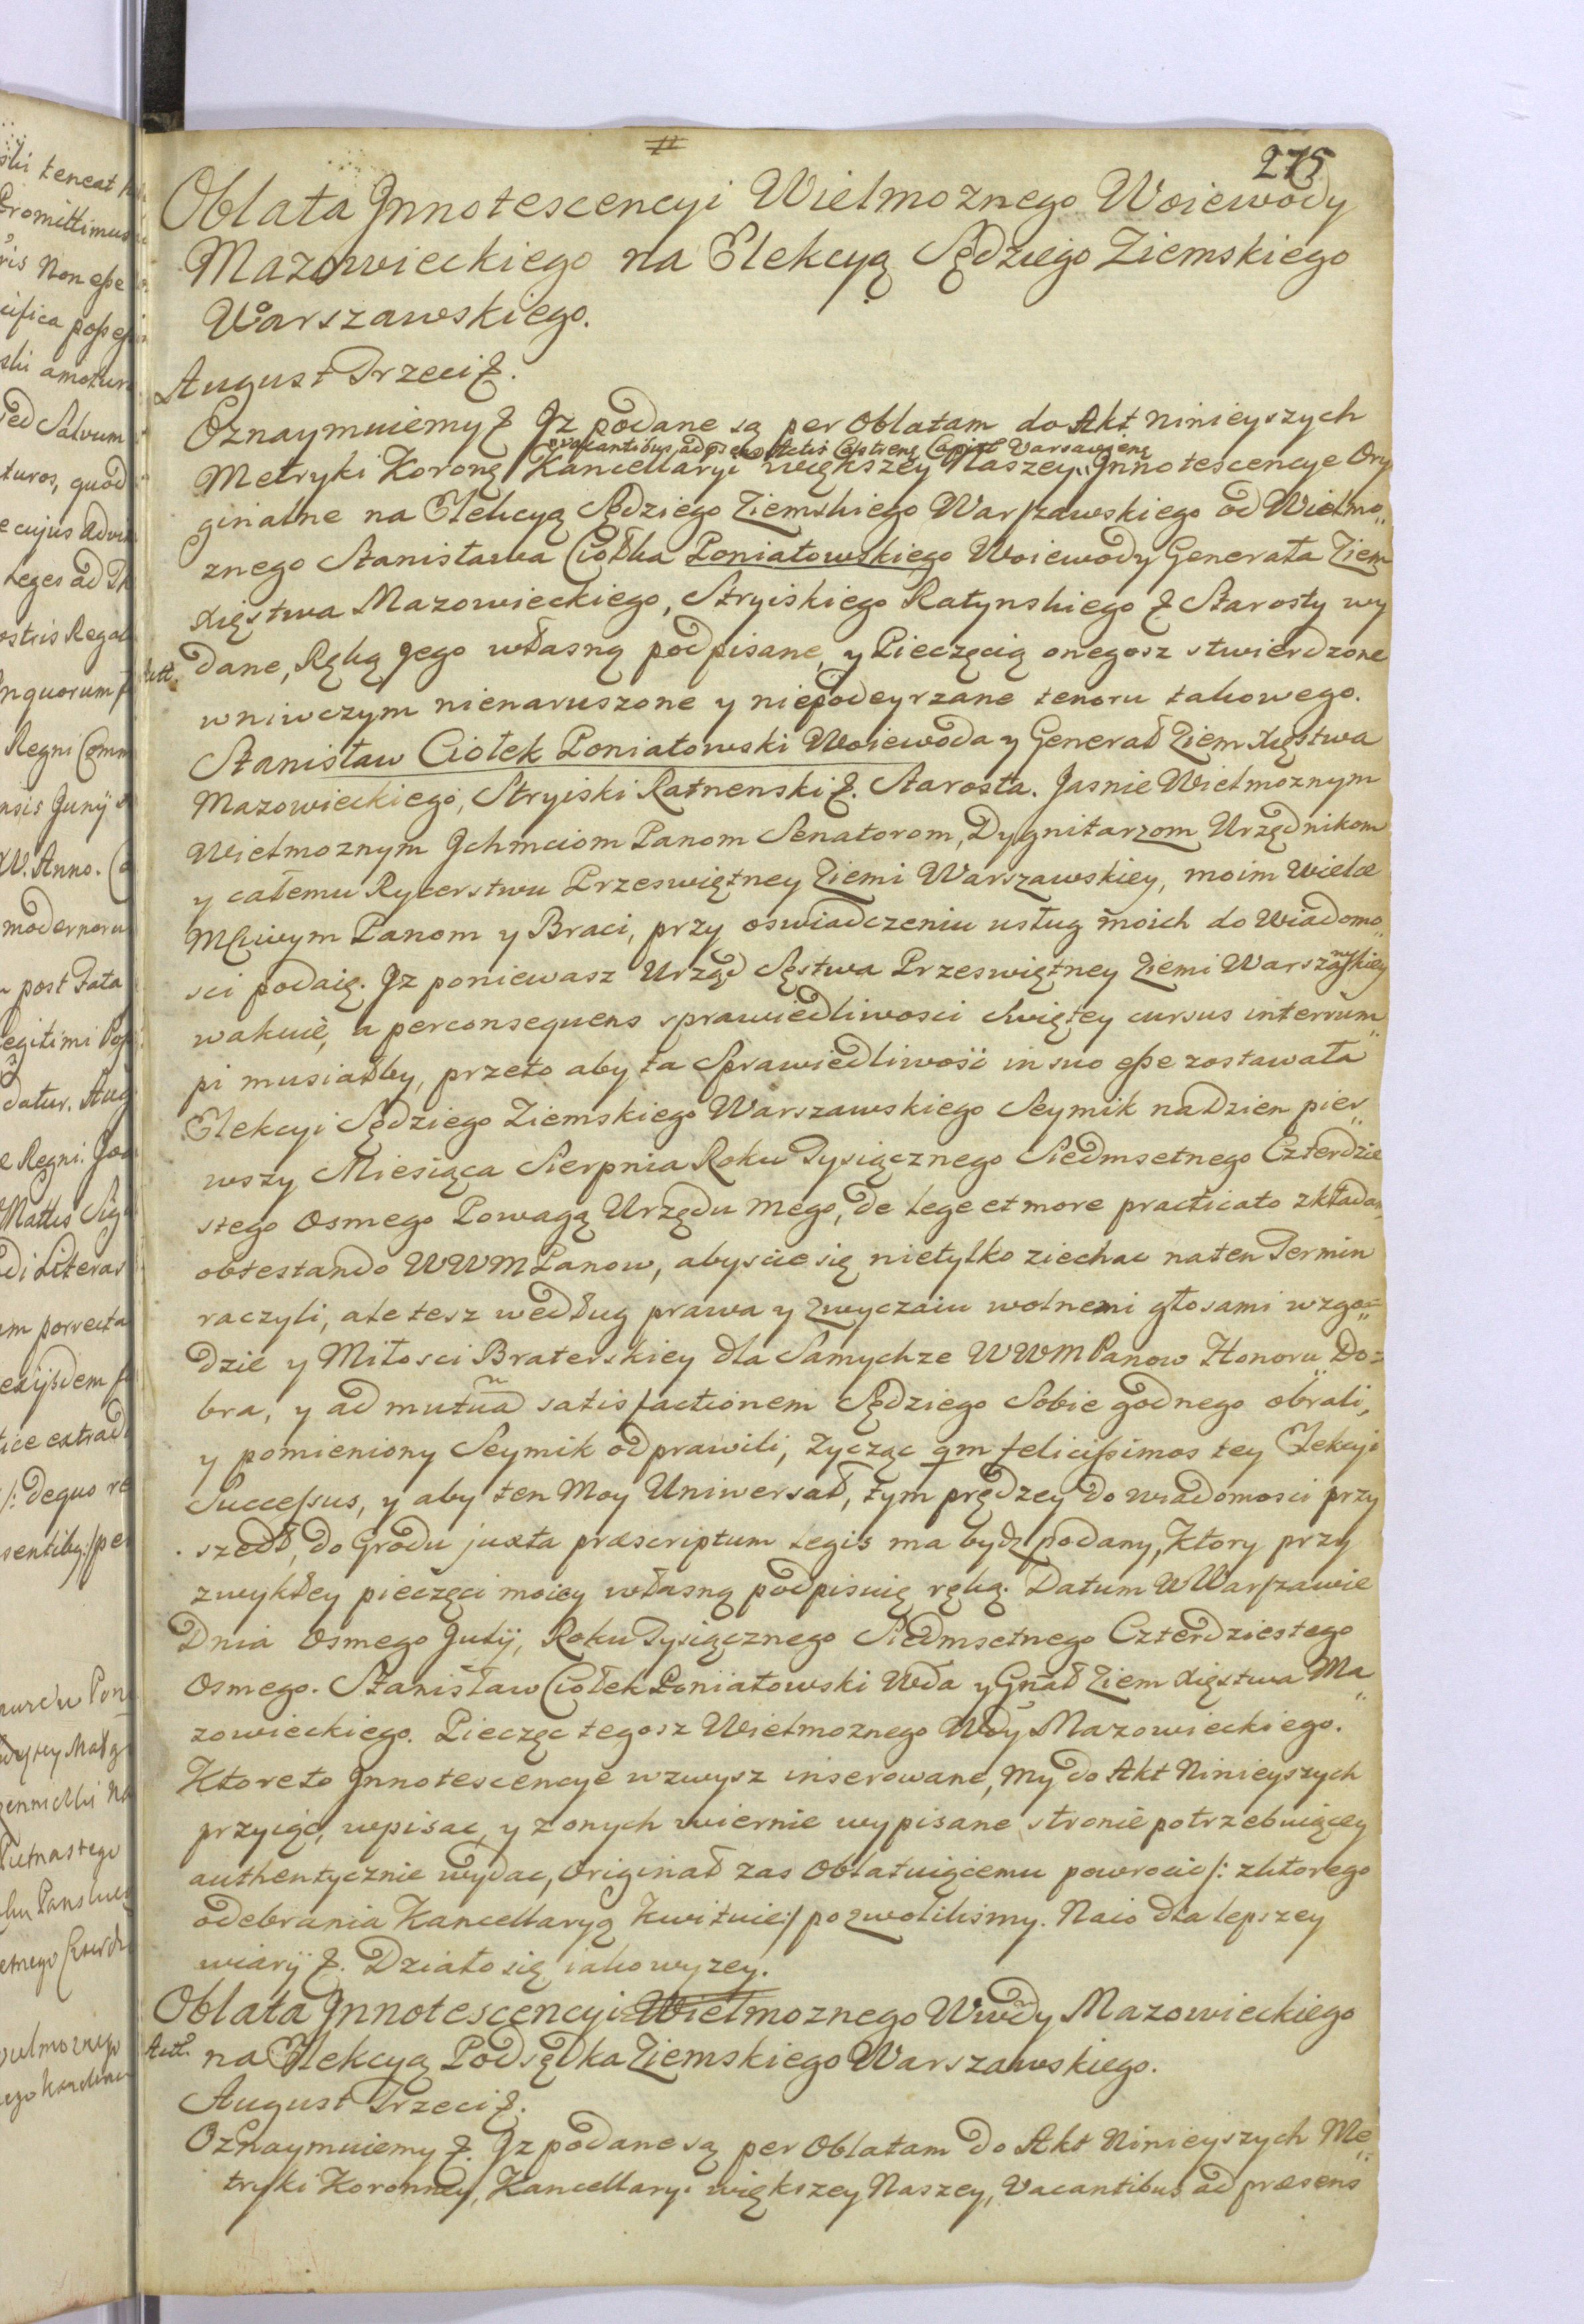 275
Oblata Jnnotescencyi Wielmoznego Woiewody
Mazowieckiego na Elekcyą Sędziego Ziemskiego
Warszawskiego.
August Trzeci &.
Oznaymuiemy & Jz podane są per Oblatam do Akt ninieyszych
vacantibus ad psens Actis Castrens Capitl Varsaviens
Metryki Koronę Kancellaryi większey Naszey, Jnnotescencye Ory
ginalne na Elekcyą Sędziego Ziemskiego Warszawskiego od Wielmo„
znego Stanisława Ciołka Poniatowskiego Woiewody Generała Ziem
Xięstwa Mazowieckiego, Stryiskiego Ratynskiego &. Starosty wy
dane, Ręką Jego własną podpisane, y Pieczęcią onegosz stwierdzone
wniwczym nienaruszone y niepodeyrzane tenoru takowego.
Stanisław Ciołek Poniatowski Woiewoda y Generał Ziem Xięstwa
Mazowieckiego, Stryiski Ratnenski &. Starosta. Jasnie Wielmoznym
Wielmoznym Jchmciom Panom Senatorom, Dygnitarzom Urzędnikom
y całemu Rycerstwu Przeswiętney Ziemi Warszawskiey, moim Wielce
Mściwym Panom y Braci, przy oswiadczeniu usług moich do Wiadomo„
sci podaię. Jz poniewasz Urząd Sęstwa Przeswiętney Ziemi Warszawskiey
wakuie, a perconsequens sprawiedliwosci Swiętey cursus interrum„
pi musiałby, przeto aby ta Sprawiedliwość in suo esse zostawała
Elekcyi Sędziego Ziemskiego Warszawskiego Seymik na dzien pier„
wszy Miesiąca Sierpnia Roku Tysiącznego Siedmsetnego Czterdzie
stego Osmego Powagą Urzędu mego, de lege et more practicato zkładam
obtestando WWMPanow, abyscie się nietylko ziechac na ten Termin
raczyli, ale tesz według prawa y zwyczaiu wolnemi głosami wzgo„
dzie y Miłosci Braterskiey dla Samychze WWMPanow Honoru Do„
bra, y ad mutuã satisfactionem Sędziego Sobie godnego obrali,
y pomieniony Seymik odprawili, zycząc qm felicissimos tey Elekcyi
Successus, y aby ten Moy Uniwersał, tym prędzey do wiadomosci przy
szedł, do Grodu juxta præscriptum legis ma bydz podany, Ktory przy
zwykłey pieczęci moiey własną podpisuię ręką. Datum w Warszawie
Dnia Osmego Julij, Roku Tysiącznego Siedmsetnego Czterdziestego
Osmego. Stanisław Ciołek Poniatowski Wda y Gnał Ziem Xięstwa Ma„
zowieckiego. Pieczęc tegosz Wielmoznego Wdy Mazowieckiego.
Ktoreto Jnnotescencye wzwysz inserowane, My do Akt Ninieyszych
przyiąc, wpisac, y z onych wiernie wypisane stronie potrzebuiącey
authentycznie wydac, Originał zas Oblatuiącemu powrocic /: z ktorego
odebrania Kancellaryą Kwituie :/ pozwolilismy. Naco dla lepszey
wiary &. Działo się iako wyzey.
Oblata Jnnotescencyi Wielmoznego Wwdy Mazowieckiego
na Elekcyą Podsędka Ziemskiego Warszawskiego.
August Trzeci &.
Oznaymuiemy &. Jz podane są per Oblatam do Akt Ninieyszych Me„
tryki Koronney, Kancellaryi większey Naszey, Vacantibus ad præsens